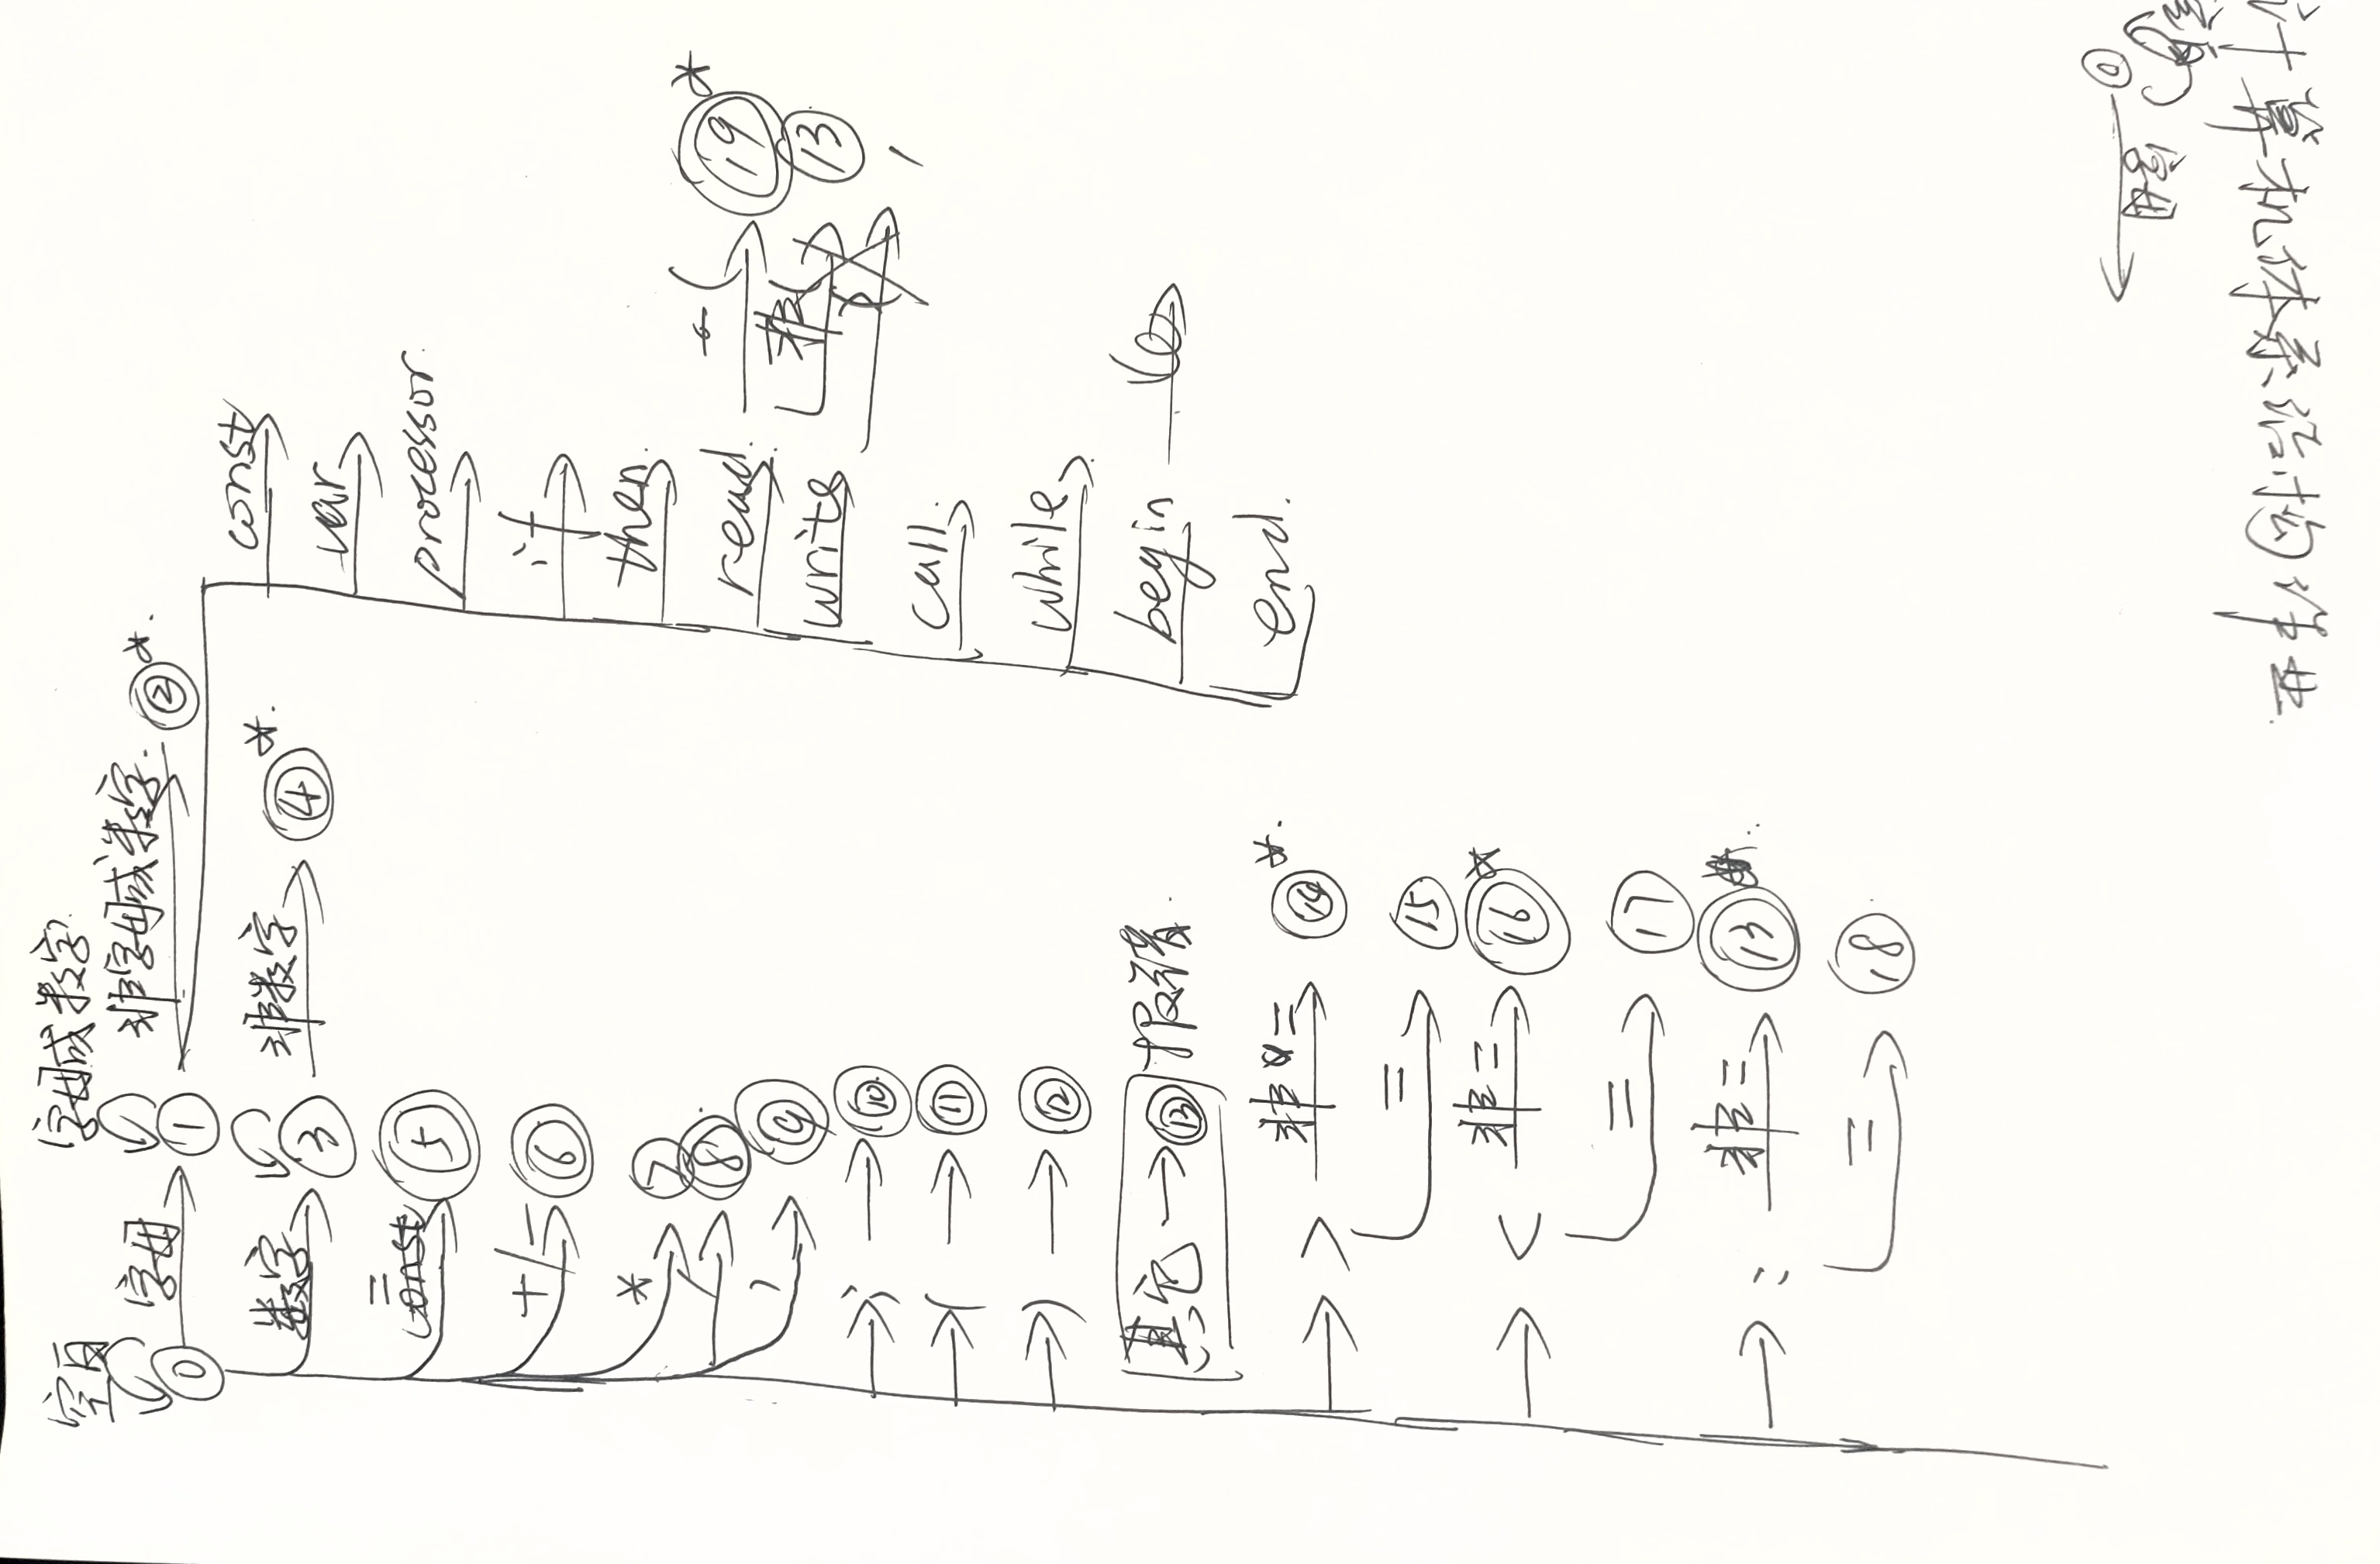 空白 字母或数字
0 字母 1 非字母或数字 2 *
数字 3 非数字 4 *
=
const 5
+/- 6
* 7
/ 8
, 9
; 10
( 11
) 12
其它 → 13 报错
> 非 = 14 *
= 15
< 非= 16 *
= 17
: 非= 13
= 18
const
var
processor
if
then
read ( 19 *
非( 13
write
call
while
begin
end
0
字母